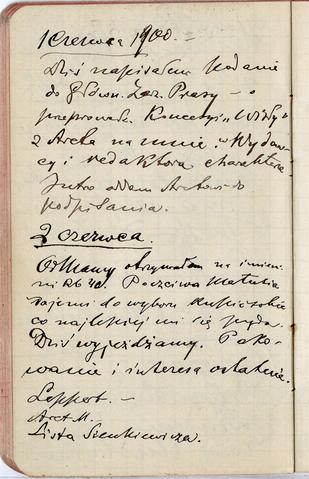 1 czerwca 1900. –
Dziś napisałem podanie
do Główn. Zar. Prasy – o
przeprowadz. Koncesyi „Wisły"
z Arcta na mnie w Wydaw-
cy i redaktora charakterze.
Jutro oddam Arctowi do
podpisania.
2 czerwca.
Od Mamy otrzymałem na imieni-
ni Rb 40. Poczciwa Matula
daje mi do wyboru kupić sobie
co najlepiej mi się nada.
Dziś wyjeżdżamy. Pako-
wanie i interesa ostatnie.
Leppert. –
Arct M.
Lista Sienkiewicza.